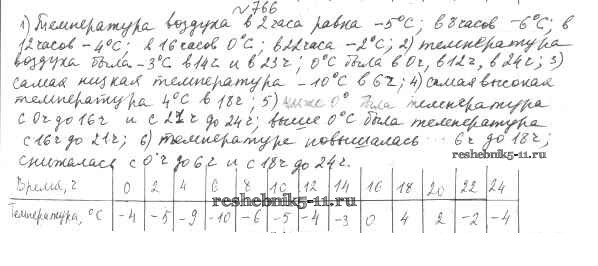 №766
1) Температура воздуха в 2 часа равна -5°С; в 8 часов -6°С; в
12 часов -4°С; в 16 часов 0°С; в 22 часа -2°С; 2) температура
воздуха была -3°С в 14 ч и в 23 ч; 0°С была в 0 ч, в 12 ч, в 24 ч; 3)
самая низкая температура -10°С в 6 ч; 4) самая высокая
температура 4°С в 18 ч; 5) ниже 0° была температура
с 0 ч до 16 ч и с 21 ч до 24 ч; выше 0°С была температура
с 16 ч до 21 ч; 6) температура повышалась с 6 ч до 18 ч;
reshebnik5-11.ru
снижалась с 0 ч до 6 ч и с 18 ч до 24 ч.
Время, ч 0 2 4 6 8 10 12 14 16 18 20 22 24
reshebnik5-11.ru
Температура, °С -4 -5 -9 -10 -6 -5 -4 -3 0 4 2 -2 -4